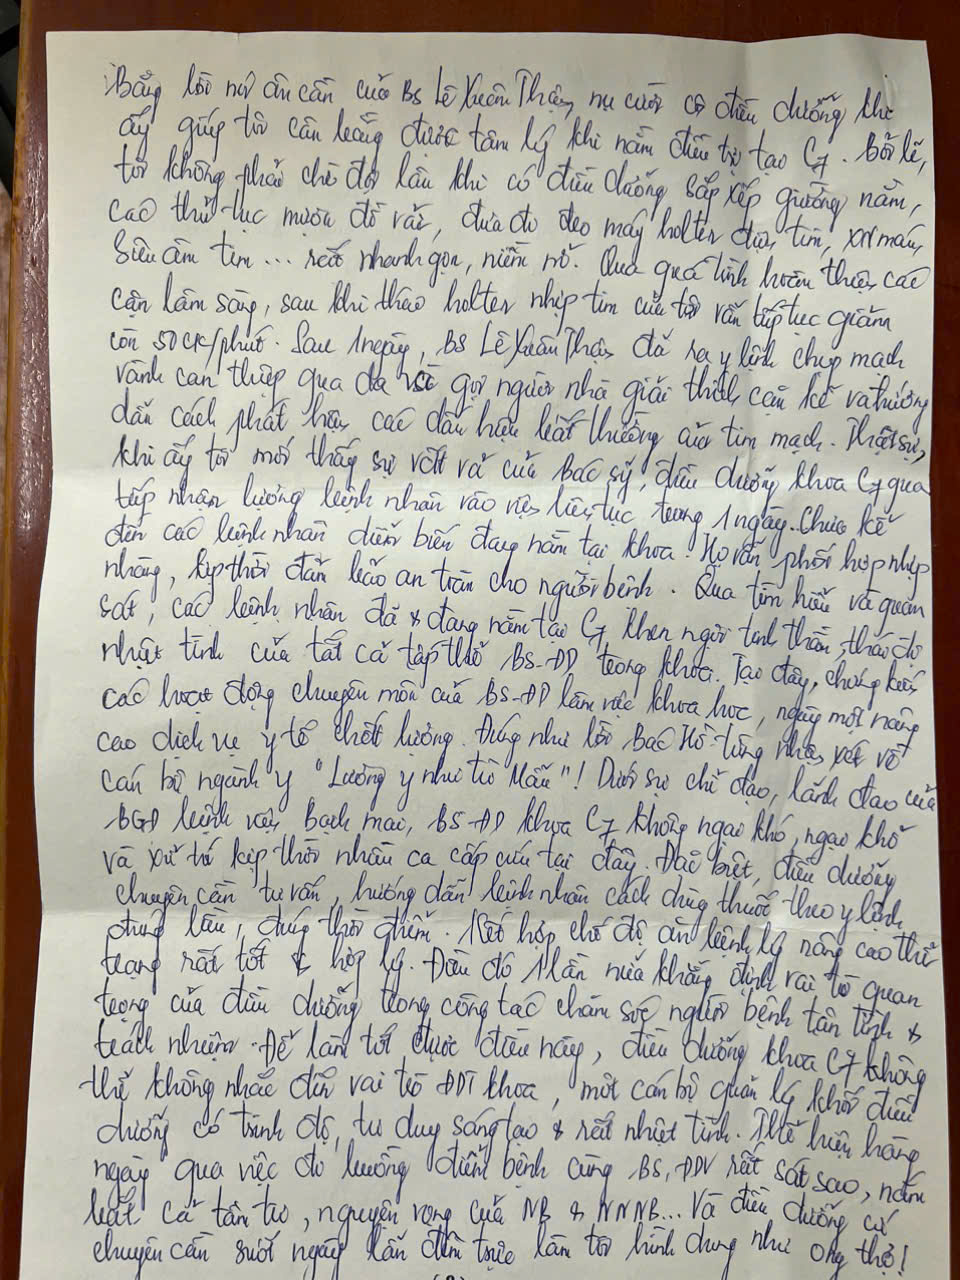 Bằng lời nói ân cần của BS Lê Xuân Thận, nụ cười cô điều dưỡng khi
ấy giúp tôi cân bằng được tâm lý khi nằm điều trị tại C7. Bởi lẽ,
tôi không phải chờ đợi lâu khi có điều dưỡng sắp xếp giường nằm,
các thủ tục mượn đồ vải, đưa đi đeo máy holter điện tim, XN máu,
Siêu âm tim... rất nhanh gọn, niềm nở. Qua quá trình hoàn thiện các
cận lâm sàng, sau khi tháo holter nhịp tim của tôi vẫn tiếp tục giảm
còn 50CK/phút. Sau 1 ngày, BS Lê Xuân Thận đã ra y lệnh chụp mạch
vành can thiệp qua da và gọi người nhà giải thích cặn kẽ và hướng
dẫn cách phát hiện các dấu hiệu bất thường của tim mạch. Thật sự,
khi ấy tôi mới thấy sự vất vả của Bác sỹ, điều dưỡng khoa C7 qua
tiếp nhận lượng bệnh nhân vào viện liên tục trong 1 ngày. Chưa kể
đến các bệnh nhân diễn biến đang nằm tại khoa. Họ vẫn phối hợp nhịp
nhàng, kịp thời đảm bảo an toàn cho người bệnh. Qua tìm hiểu và quan
sát, các bệnh nhân đã & đang nằm tại C7 khen ngợi tinh thần, thái độ
nhiệt tình của tất cả tập thể BS-ĐD trong khoa. Tại đây, chứng kiến
các hoạt động chuyên môn của BS-ĐD làm việc khoa học, ngày một nâng
cao dịch vụ y tế chất lượng. Đúng như lời Bác Hồ từng nhận xét về
cán bộ ngành y "Lương y như từ Mẫu"! Dưới sự chỉ đạo, lãnh đạo của
BGĐ bệnh viện Bạch mai, BS-ĐD khoa C7 không ngại khó, ngại khổ
và xử trí kịp thời nhiều ca cấp cứu tại đây. Đặc biệt, điều dưỡng
chuyên cần tư vấn, hướng dẫn bệnh nhân cách dùng thuốc theo y lệnh
đúng liều, đúng thời điểm. Kết hợp chế độ ăn bệnh lý nâng cao thể
trạng rất tốt & hợp lý. Điều đó 1 lần nữa khẳng định vai trò quan
trọng của điều dưỡng trong công tác chăm sóc người bệnh tận tình &
trách nhiệm. Để làm tốt được điều này, điều dưỡng khoa C7 không
thể không nhắc đến vai trò ĐDT khoa, một cán bộ quản lý khối điều
dưỡng có trình độ, tư duy sáng tạo & rất nhiệt tình. Thể hiện hàng
ngày qua việc đi buồng điểm bệnh cùng BS, ĐDV rất sát sao, nắm
bắt cả tâm tư, nguyện vọng của NB & NNNB... Và điều dưỡng cứ
chuyên cần suốt ngày lẫn đêm trực làm tôi hình dung như ong thợ!